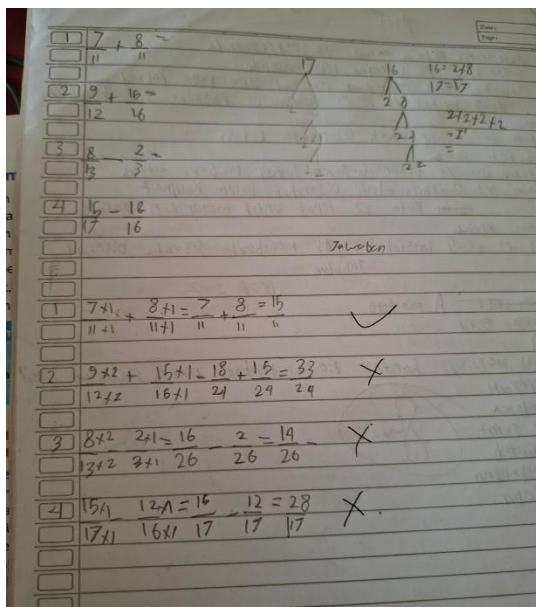 1 7/11 + 8/11 =
17 16 16 = 2×8
17=17
2 9/12 + 15/16 =
2 8
2×2×2×2
2 4
=
3 8/13 - 2/3 =
2 2
4 15/17 - 12/16
Jawaban
1 7×1/11×1 + 8×1/11×1 = 7/11 + 8/11 = 15/11 ✓
2 9×2/12×2 + 15×1/16×1 = 18/24 + 15/24 = 33/24 ×
3 8×2/13×2 2×1/3×1 = 16/26 - 2/26 = 14/26 - ×
4 15×1/17×1 12×1/16×1 = 16/17 - 12/17 = 28/17 ×.